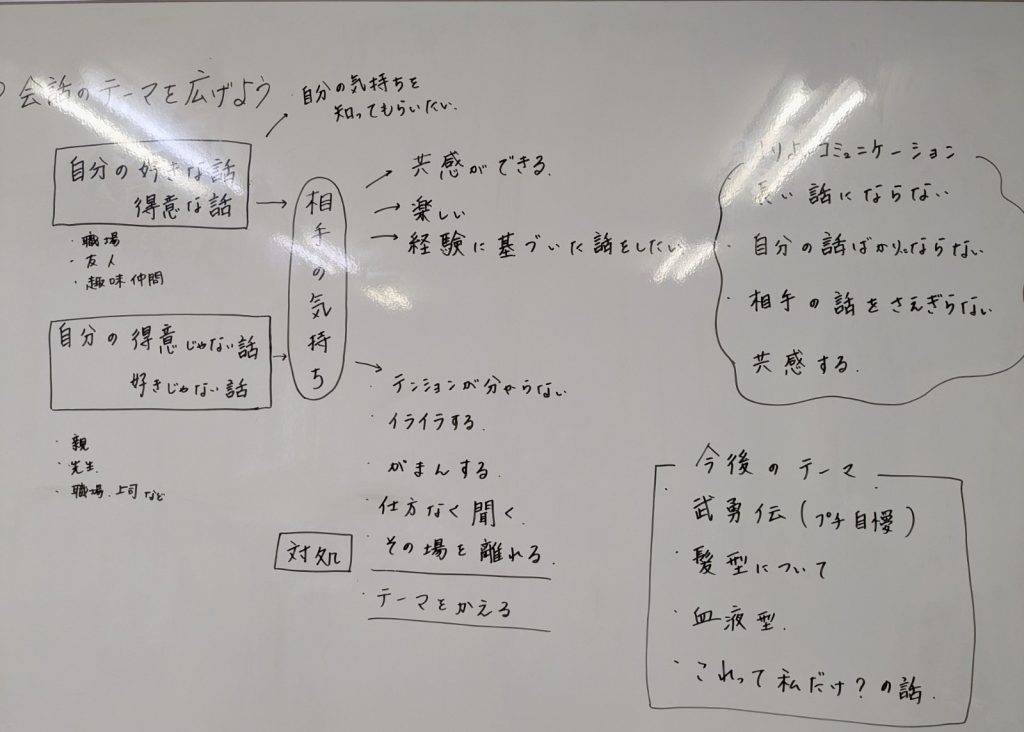 会話のテーマを広げよう
自分の気持ちを
知ってもらいたい.
自分の好きな話
得意な話
・職場
・友人
・趣味仲間
自分の得意じゃない話
好きじゃない話
・親
・先生
・職場.上司など
相手の気持ち
共感ができる.
楽しい
経験に基づいた話をしたい
・テンションが分からない
・イライラする.
・がまんする.
・仕方なく聞く.
対処
・その場を離れる.
・テーマをかえる
よりよいコミュニケーション
長い話にならない
・自分の話ばかりにならない
・相手の話をさえぎらない
共感する.
今後のテーマ
・武勇伝(プチ自慢)
・髪型について
・血液型.
・これって私だけ?の話.